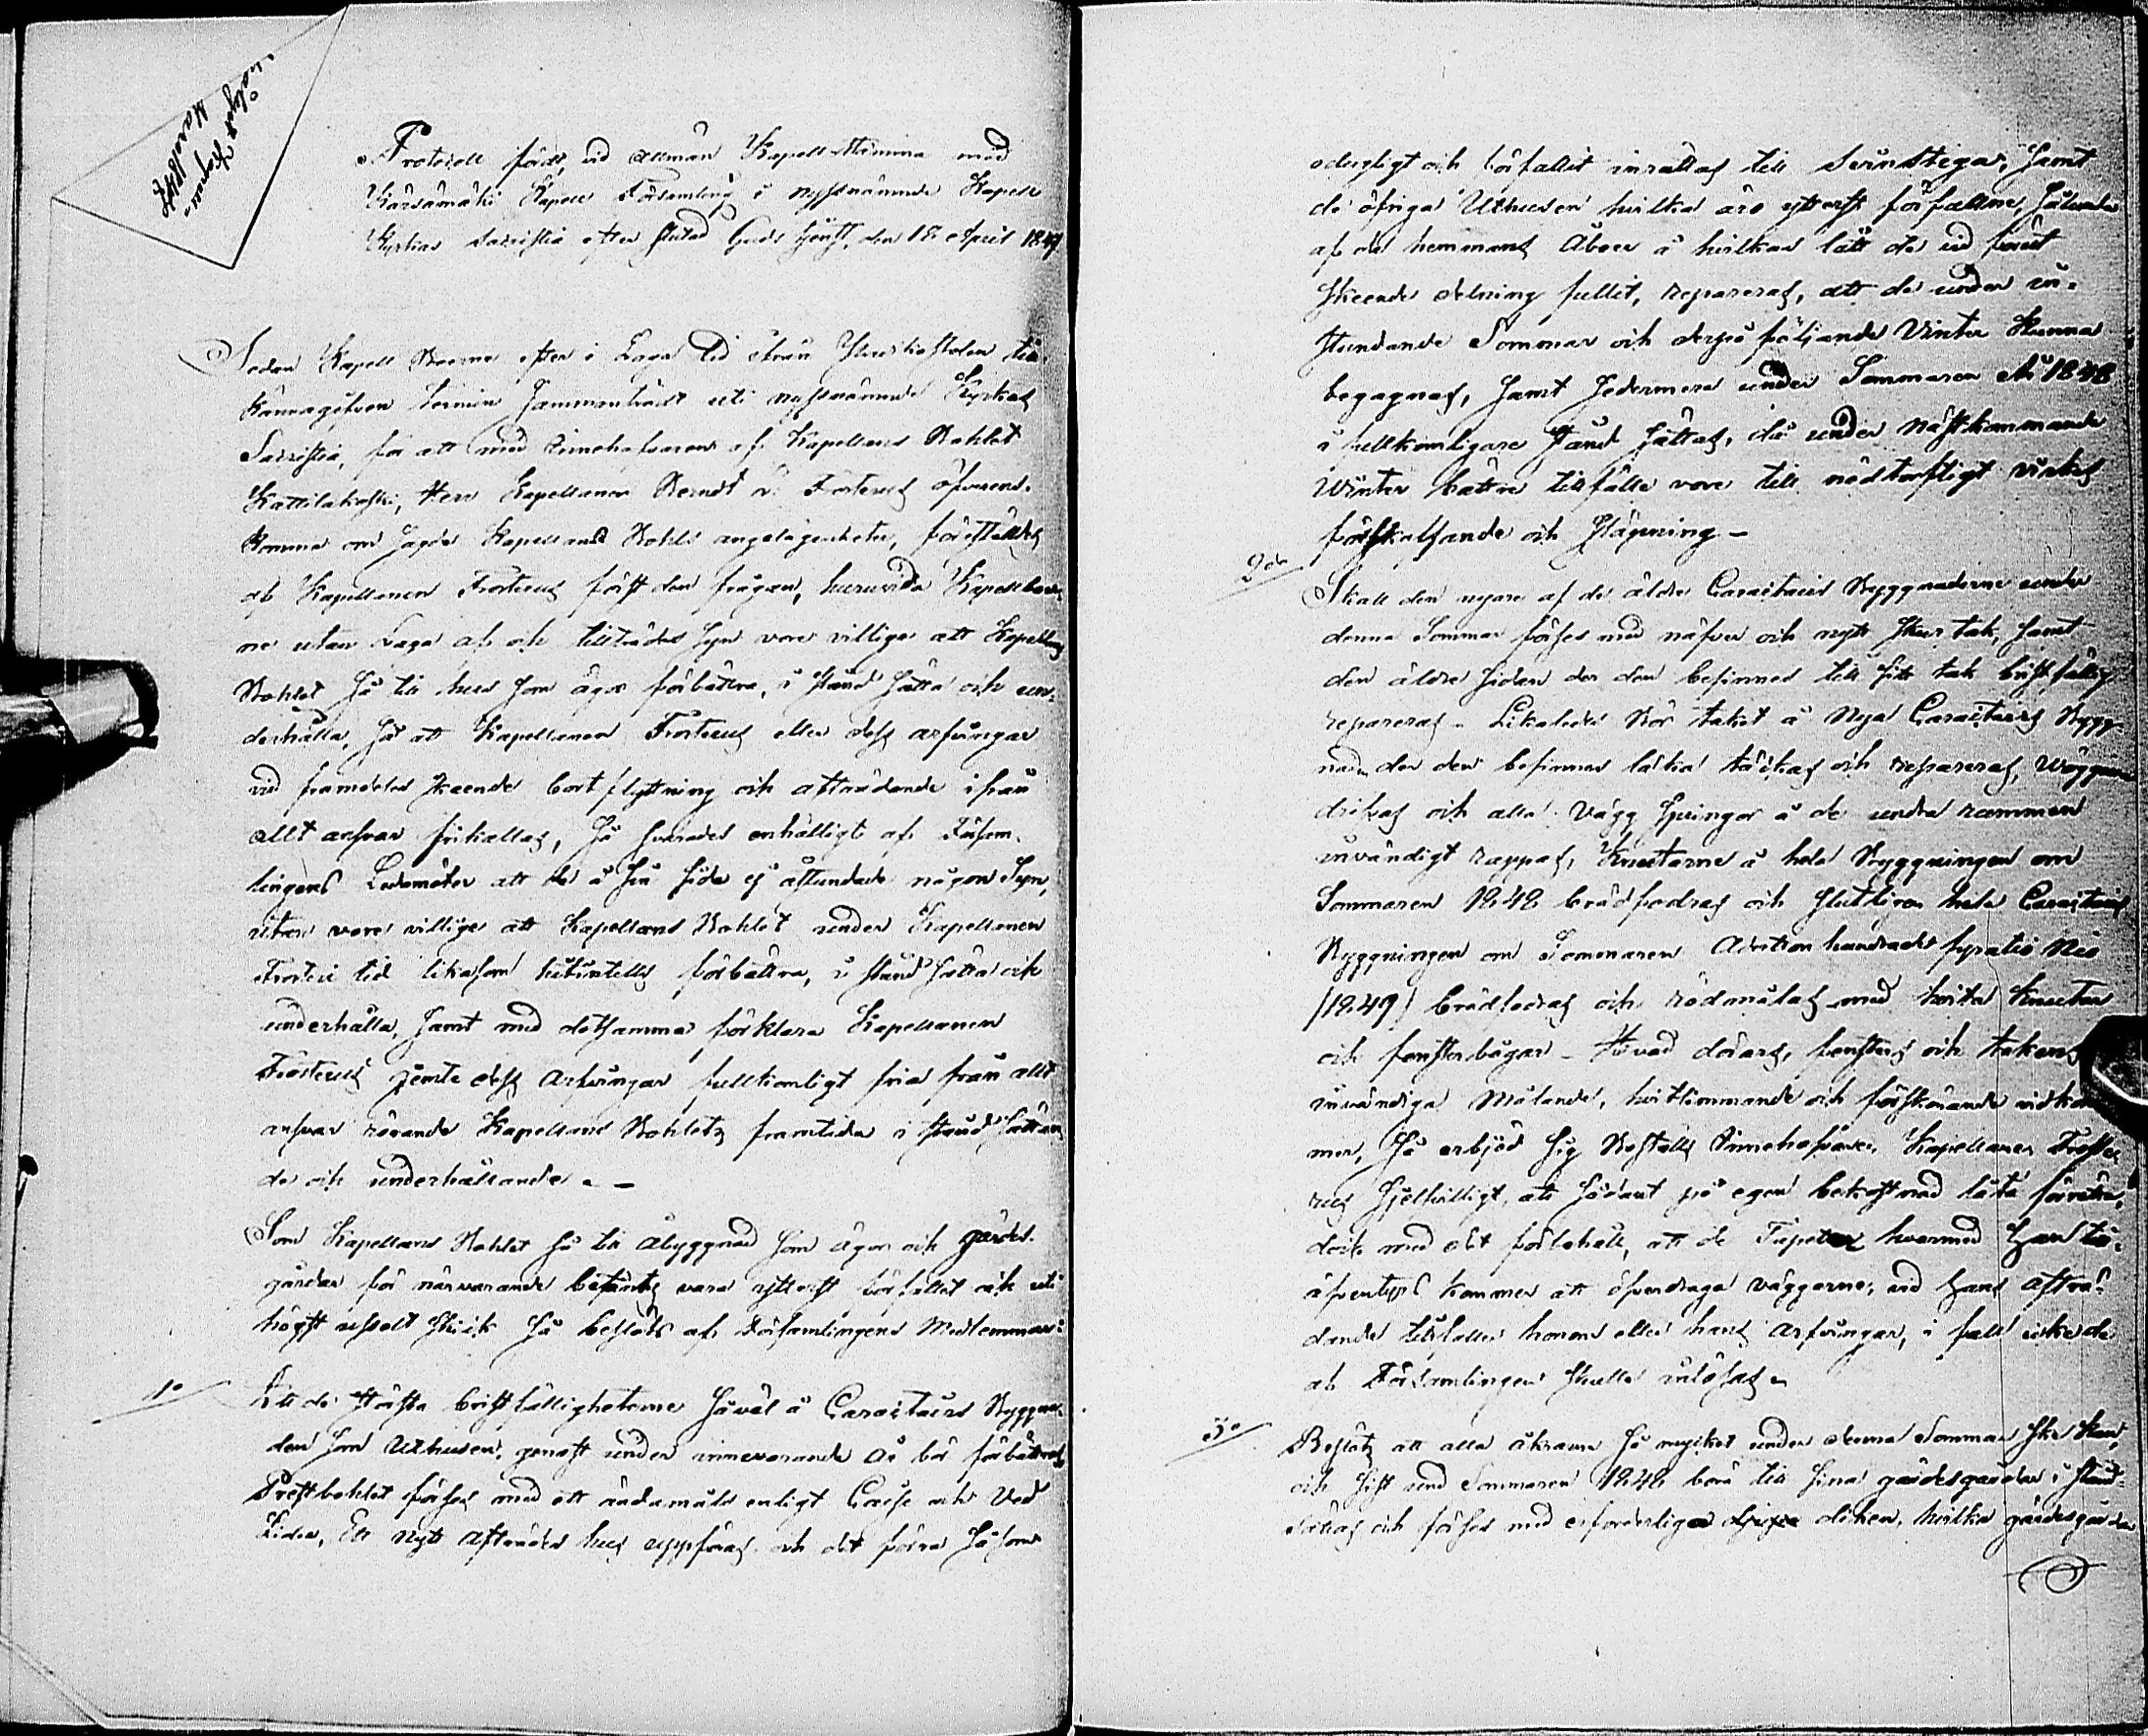 Protocoll fördt vid allmän Kapell-Stämma med
Kärsämäki Kapell Församling i nyssnämnde Kapell
Kyrkas Sacristia efter slutad Guds tjenst, den 18 April 1847
Sedan Kapell Boerne efter i Laga tid ifrån Predikostolen till-
kännagifven termin sammanträdt uti nyssnämnde Kyrkas
Sacristia, för att med innehafvaren af Kapellans Bohlet
Kattilakoski, Herr Kapellanen Berndt Frosterus öfverens-
komma om sagde Kapellans Bohls angelägenheter, föreställdes
af Kapellanen Frosterus först den frågan, huruvida Kapellboer-
ne utan Laga af och tillträdes syn vore villige att Kapellans
Bohlet så till hus som ägor förbättra, i stånd sätta och un-
derhålla, så att Kapellanen Frosterus eller dess arfvingar
vid framdeles skeende bortflyttning och afträdande ifrån
allt ansvar frikallas, så svarades enhälligt af Försam-
lingens Ledamöter att de å sin sida ej åstundade någon Syn,
utan vore villige att Kapellans Bohlet under Kapellanen
Frosteri tid likasom hittills förbättra, i stånd sätta och
underhålla, samt med detsamma förklara Kapellanen
Frosterus jemte dess Arfvingar fullkomligt fria från allt
ansvar rörande Kapellans Bohlets framtida i stånd sättan-
de och underhållande. –
Som Kapellans Bohlet så till åbyggnad som ägor och gärdes-
gårdar för närvarande befants vara ytterst förfallet och uti
högst uselt skick så beslöts af Församlingens Medlemmar:
1o Att de största bristfälligheterne såväl å Caractairs Byggna-
den som Uthusen, genast under innevarande år bör förbättras,
Prestbohlet förses med ett ändamåls enligt och Ved
Lider, Ett nytt Afträdes hus uppföras och det förra såsom
odugligt och förfallit inrättas till Svinstigor, samt
de öfriga Uthusen hvilka äro ytterst förfallne,
af de hemmans Åboer å hvilkas lått de vid förut
skeende delning fallit, repareras, att de under in-
stundande Sommar och derpå följande Vinter kunna
begagnas, samt sedermera under Sommaren År 1848
i fullkomligare stånd sättas, då under nästkommande
Winter bättre tillfälle vore till nödtorftigt virkes
förskaffande och släpning –
2do Skall den nyare af de äldre Caractairs Byggnaderne under
denna Sommar förses med näfver och nytt tak, samt
den äldre sidan der den befinnes till sitt tak bristfällig
repareras – Likaledes bör taket å Nya Caractairs Bygg-
naden der den befinnes läcka täckas och repareras, Wäggarne
drifvas och alla Vägg springor å de undra rummen
invändigt rappas, Knutarne å hela Byggningen om
Sommaren 1848 brädfodras och slutligen hela Caractairs
Byggningen om Sommaren Aderton hundrade fyratio Nio
/1849/ brädfodras och rödmålas med hvita knutar
och fensterbågar – Hvad dörars, fensters och takens
invändiga Målande, hvitlimmande och vidkom-
mer, så erbjöd sig Boställs Innehafvaren, Kapellanen Froste-
rus sjelfvilligt, att sådant på egen bekostnad låta
dock med det förbehåll, att de Tapeter hvarmed han
äfventyrs kommer att öfverdraga väggarne, vid hans afträ-
dande tillfaller honom eller hans Arfvingar, i fall icke de
af Församlingen skulle inlösas.
3o Beslöts att alla åkrarne så mycket under denna Sommar ske kan,
och sist Sommaren 1848 bör till sina gärdesgårdar i stånd
sättas och förses med erforderliga diken, hvilka gärdesgårdar